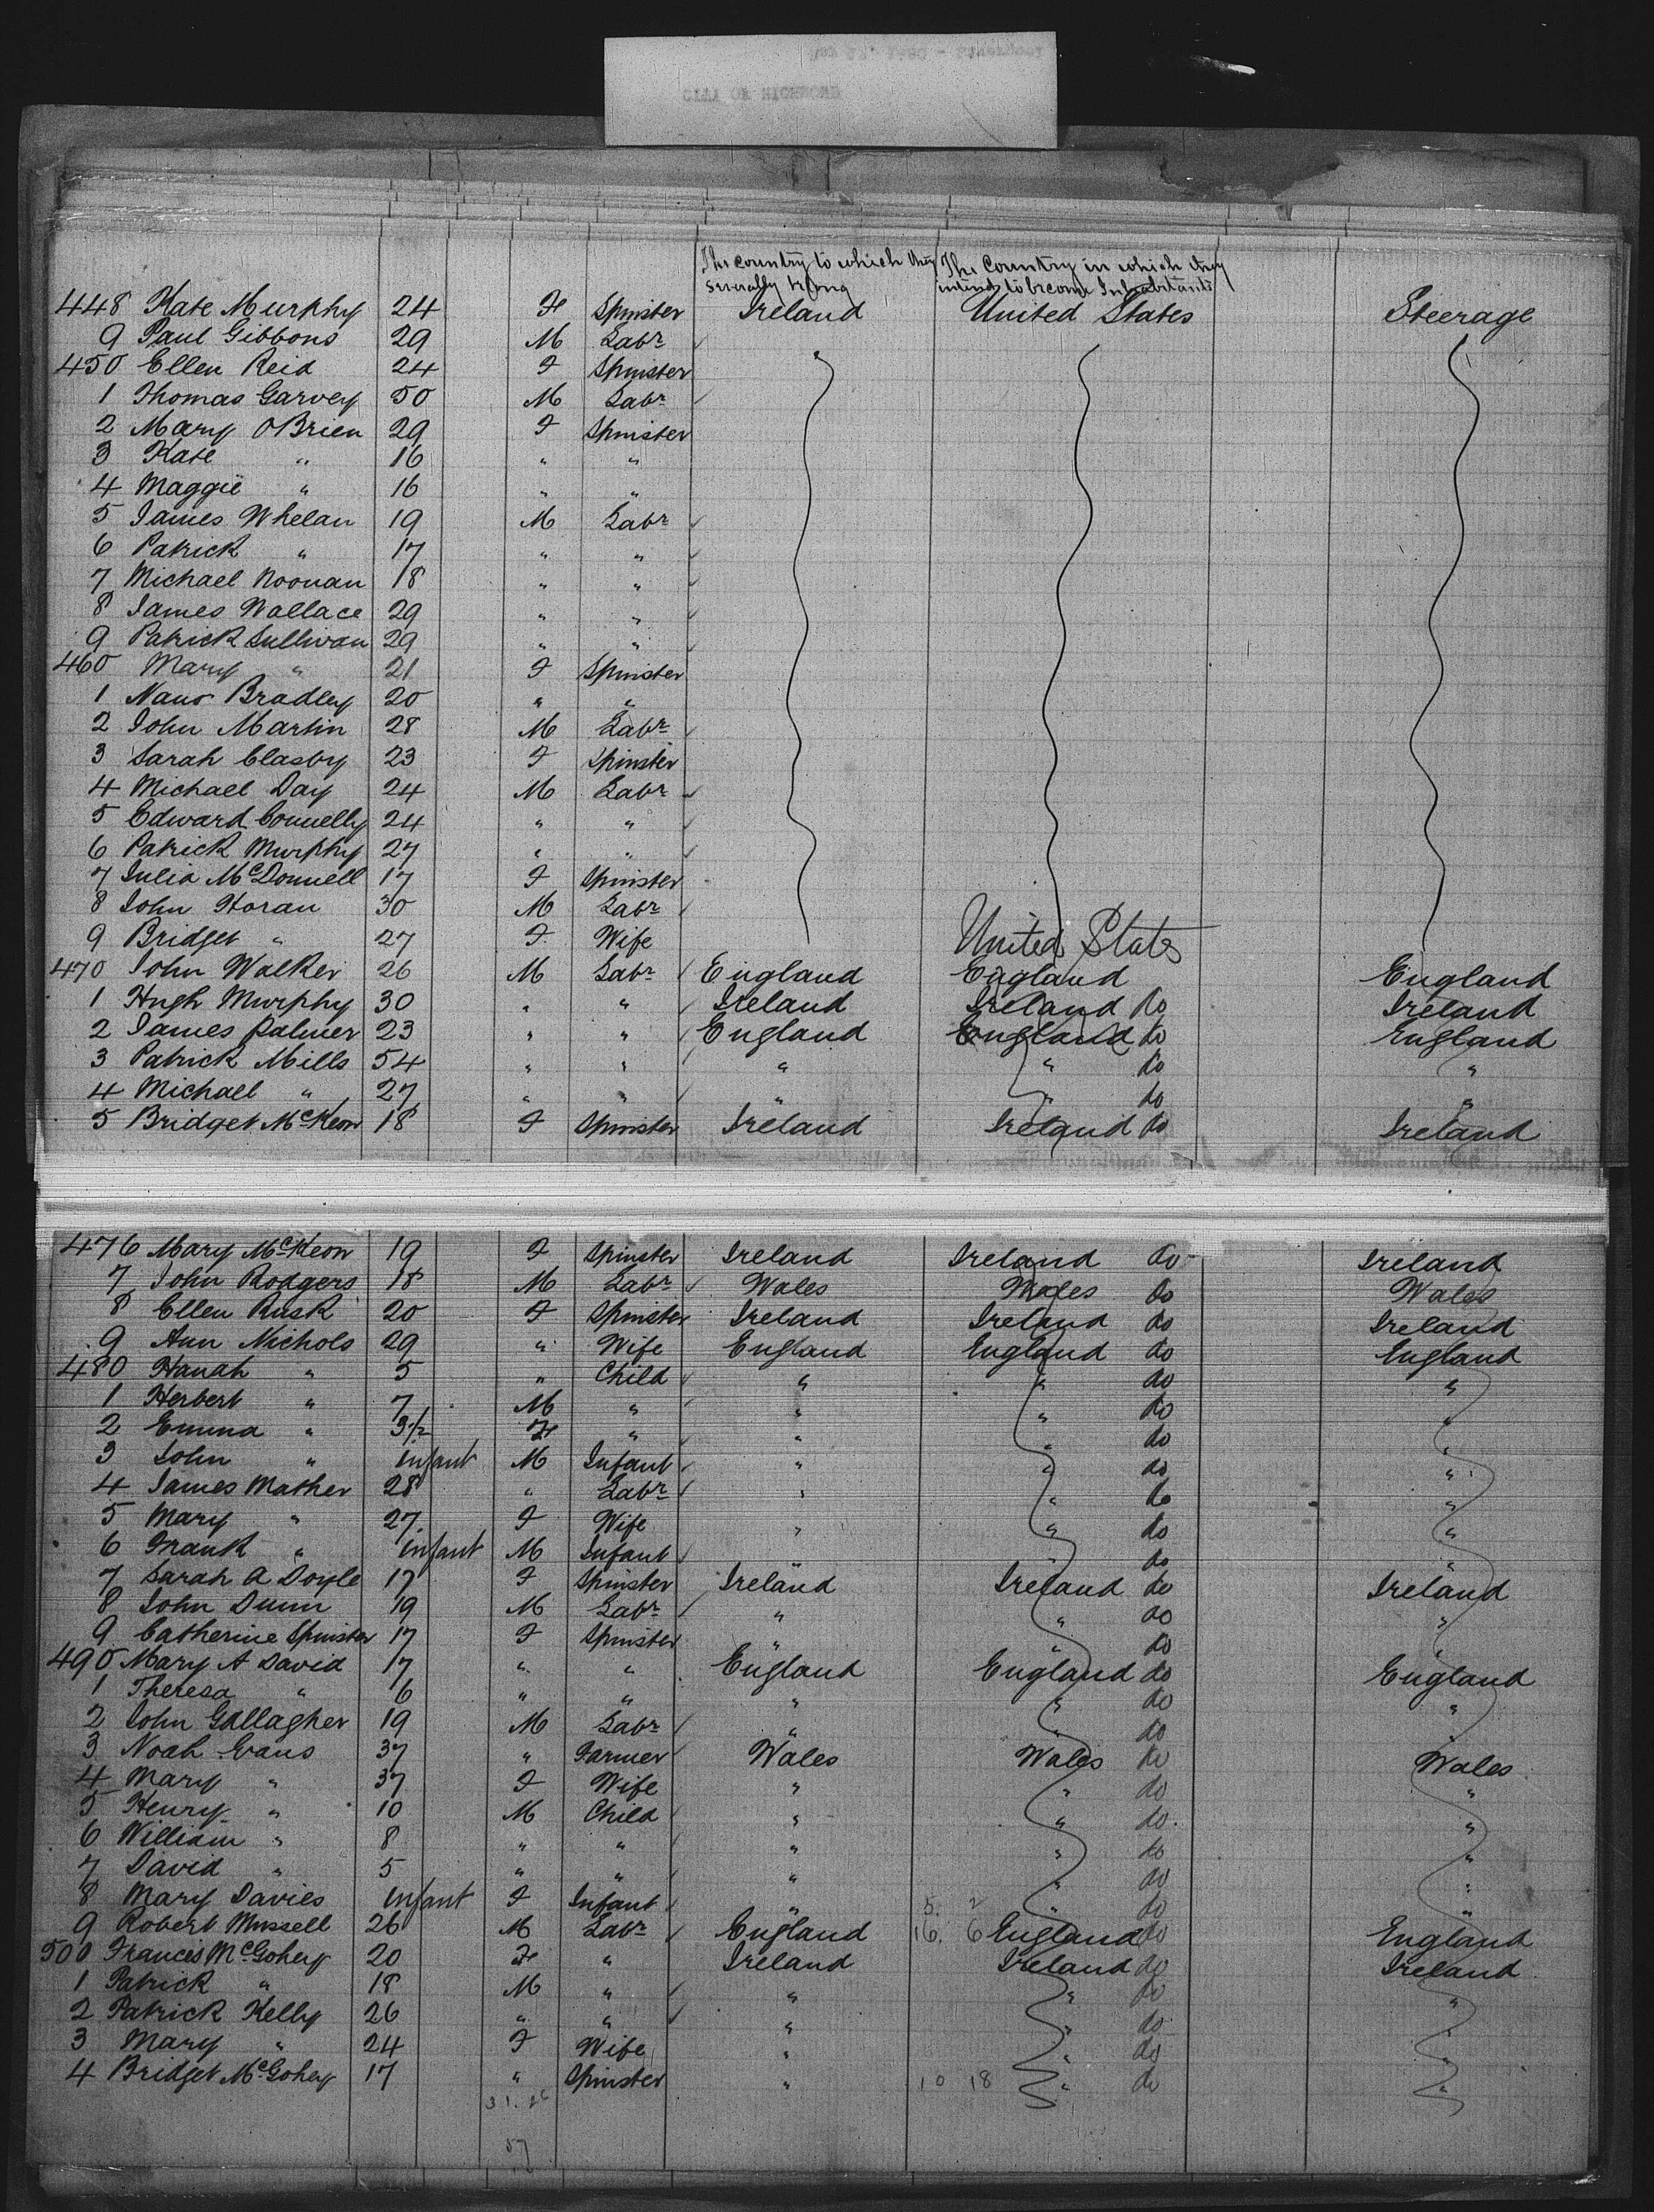 CITY OF RICHMOND
The country to which they severally belong The Country in which they intend to become Inhabitants
448 Kate Murphy 24 F Spinster Ireland United States Steerage
9 Paul Gibbons 29 M Labr
450 Ellen Reid 24 F Spinster
1 Thomas Garvey 50 M Labr
2 Mary OBrien 29 F Spinster
3 Kate " 16 " "
4 Maggie " 16 " "
5 James Whelan 19 M Labr
6 Patrick " 17 " "
7 Michael Noonan 18 " "
8 James Wallace 29 " "
9 Patrick Sullivan 29 " "
460 Mary " 21 F Spinster
1 Nano Bradley 20 " "
2 John Martin 28 M Labr
3 Sarah Clasby 23 F Spinster
4 Michael Day 24 M Labr
5 Edward Connelly 24 " "
6 Patrick Murphy 27 " "
7 Julia McDonnell 17 F Spinster
8 John Horan 30 M Labr
9 Bridget " 27 F Wife United States
470 John Walker 26 M Labr England England England
1 Hugh Murphy 30 " " Ireland Ireland do Ireland
2 James Palmer 23 " " England England do England
3 Patrick Mills 54 " " " " do "
4 Michael " 27 " " " " do "
5 Bridget McKeon 18 F Spinster Ireland Ireland do Ireland
476 Mary McKeon 19 F Spinster Ireland Ireland do Ireland
7 John Rodgers 18 M Labr Wales Wales do Wales
8 Ellen Rusk 20 F Spinster Ireland Ireland do Ireland
9 Ann Nichols 29 " Wife England England do England
480 Hanah " 5 " Child " " do "
1 Herbert " 7 M " " " do "
2 Emma " 3½ F " " " do "
3 John " infant M Infant " " do "
4 James Mather 28 " Labr " " do "
5 Mary " 27 F Wife " " do "
6 Frank " infant M Infant " " do "
7 Sarah A Doyle 17 F Spinster Ireland Ireland do Ireland
8 John Dunn 19 M Labr " " do "
9 Catherine Spinster 17 F Spinster " " do "
490 Mary A David 17 " " England England do England
1 Theresa " 6 " " " " do "
2 John Gallagher 19 M Labr " " do
3 Noah Evans 37 " Farmer Wales Wales do Wales
4 Mary " 37 F Wife " " do "
5 Henry " 10 M Child " " do "
6 William " 8 " " " " do "
7 David " 5 " " " " do "
8 Mary Davies infant F Infant " 5. 2 do "
9 Robert Mussell 26 M Labr England 16. 6 England do England
500 Francis McGohey 20 F " Ireland Ireland do Ireland
1 Patrick " 18 M " " " do "
2 Patrick Kelly 26 " " " " do "
3 Mary " 24 F Wife " " do "
4 Bridget McGohey 17 " Spinster " 10 18 " do "
31. 26
57